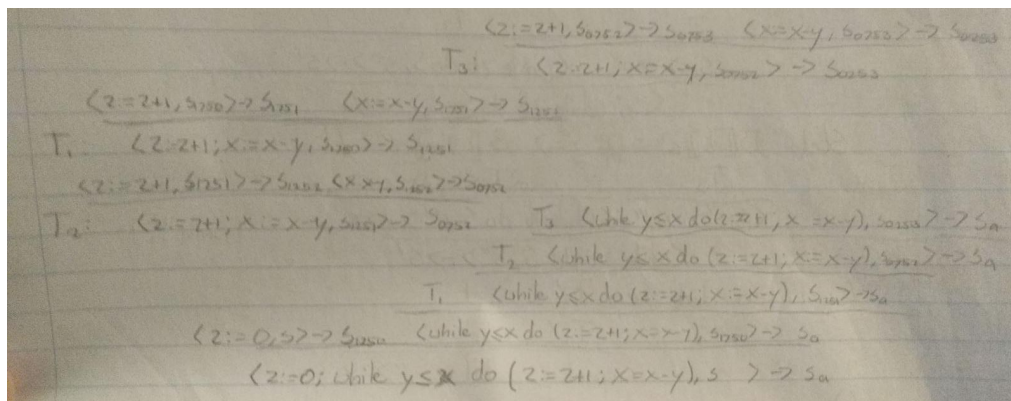 <z:=z+1, S0752>→S0753 <x:=x-y, S0753>→S0253
T3: <z:=z+1; x:=x-y, S0752>→S0253
<z:=z+1, S1750>→S1751 <x:=x-y, S1751>→S1251
T1: <z:=z+1; x:=x-y, S1750>→S1251
<z:=z+1, S1251>→S1252 <x:=x-y, S1252>→S0752
T2: <z:=z+1; x:=x-y, S1251>→S0752 T3 <while y≤x do(z:=z+1, x:=x-y), S0253>→Sa
T2 <while y≤x do (z:=z+1; x:=x-y), S0752>→Sa
T1 <while y≤x do (z:=z+1; x:=x-y), >→Sa
<z:=0, s>→S1250 <while y≤x do (z:=z+1; x:=x-y), S1750>→Sa
<z:=0; while y≤x do (z:=z+1; x:=x-y), s >→Sa